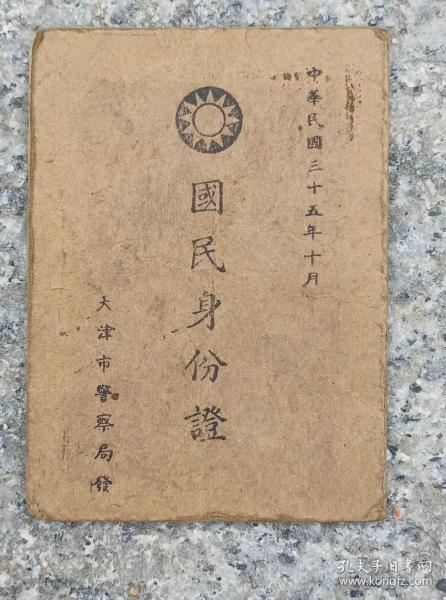 中華民國三十五年十月
國民身份證
天津市警察局發
孔夫子旧书网
www.kongfz.com